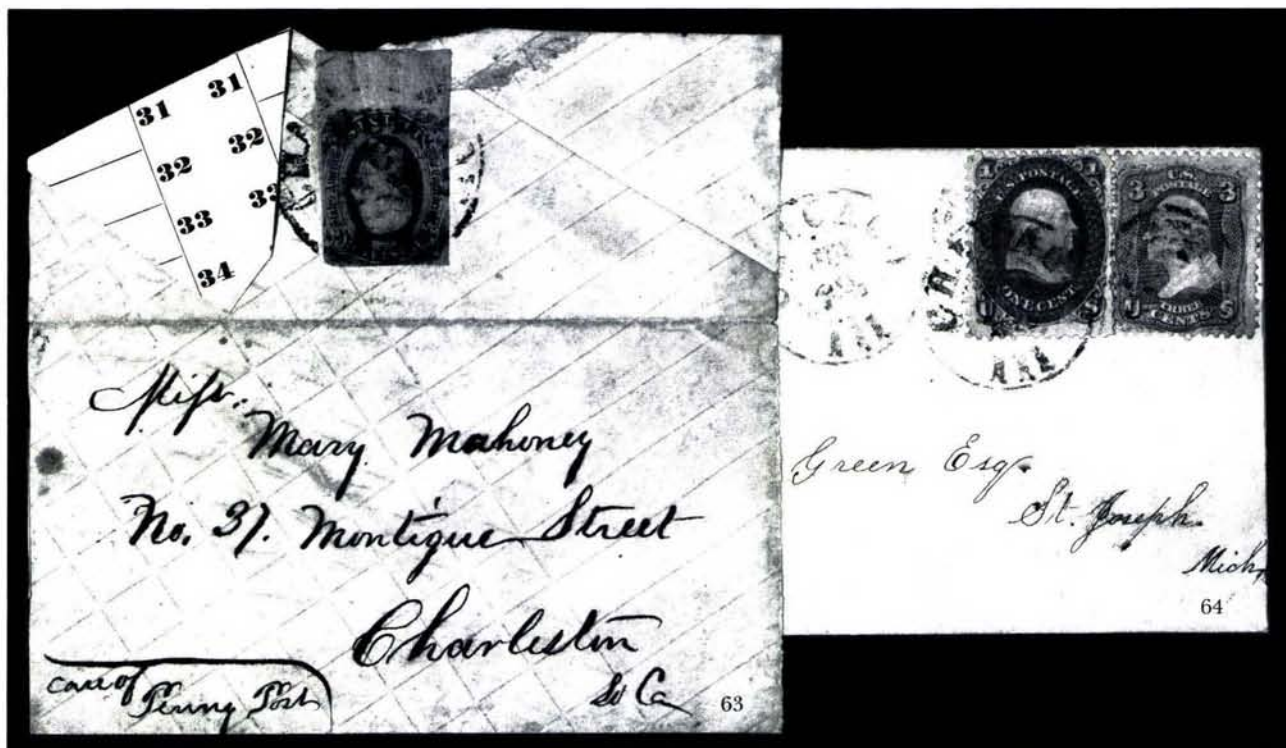 31 31
32 32
33 33
34
Miss.
Mary Mahoney
No. 37. Montigue Street
Charleston
So Ca
care of
Penny Post
63
1 1
U.S. POSTAGE
ONE CENT
U S
3 3
U.S.
POSTAGE
THREE
CENTS
U S
ARK
ARK
Green Esq.
St. Joseph.
Mich,
64